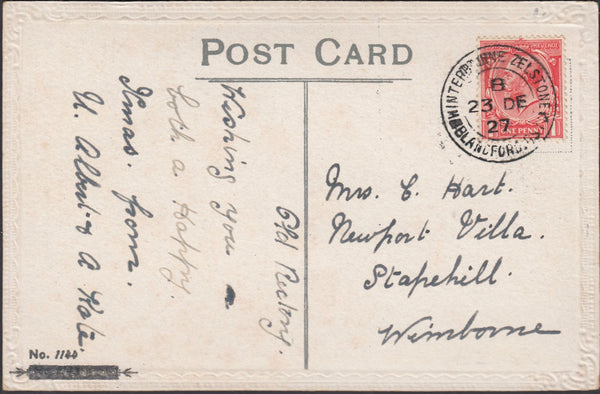 POST CARD
Old Rectory.
Wishing you
both a Happy.
Xmas. from.
U. Albert & A Kate.
WINTERBOURNE ZELSTONE
BLANDFORD.
B
23 DE
27
ONE PENNY
Mrs. C. Hart.
Newport Villa.
Stapehill.
Wimborne
No. 1144